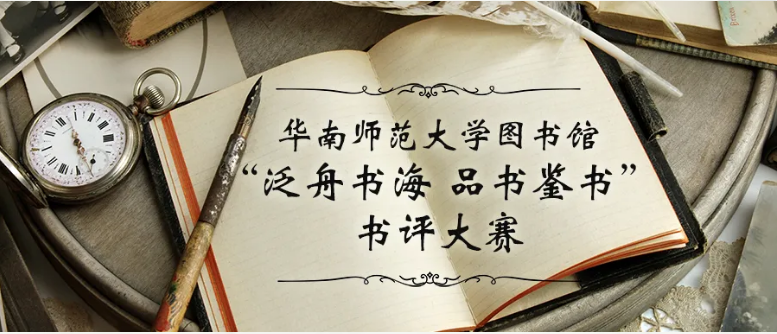 华南师范大学图书馆
“泛舟书海 品书鉴书”
书评大赛